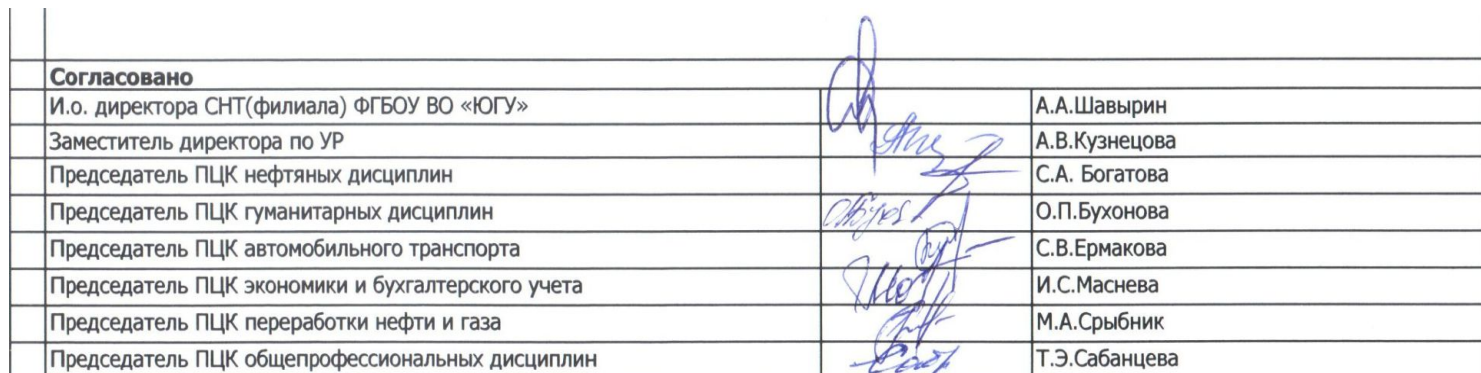 Согласовано
И.о. директора СНТ(филиала) ФГБОУ ВО «ЮГУ» А.А.Шавырин
Заместитель директора по УР А.В.Кузнецова
Председатель ПЦК нефтяных дисциплин С.А. Богатова
Председатель ПЦК гуманитарных дисциплин О.П.Бухонова
Председатель ПЦК автомобильного транспорта С.В.Ермакова
Председатель ПЦК экономики и бухгалтерского учета И.С.Маснева
Председатель ПЦК переработки нефти и газа М.А.Срыбник
Председатель ПЦК общепрофессиональных дисциплин Т.Э.Сабанцева